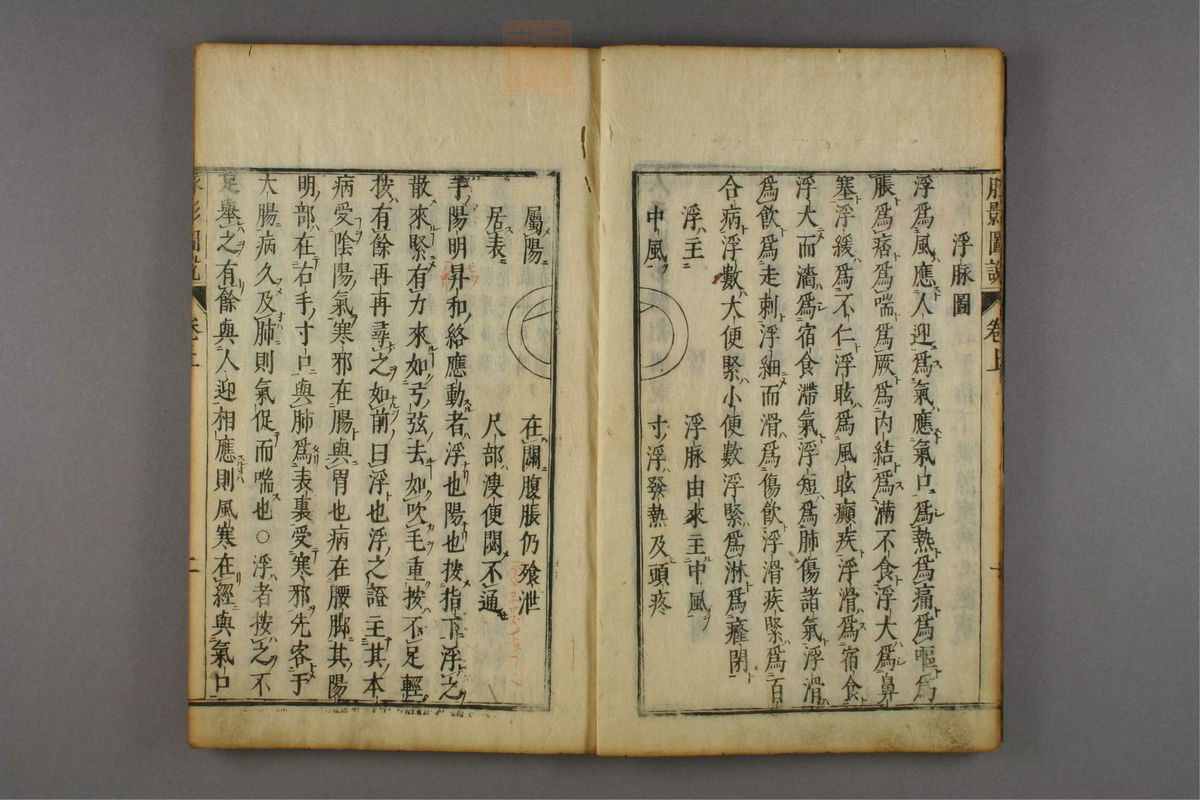 脈影圖說 卷上
浮脉圖
浮爲風應人迎爲氣應氣口爲熱爲痛爲嘔爲
脹爲痞爲喘爲厥爲内結爲滿不食浮大爲鼻
塞浮緩爲不仁浮眩爲風眩癲疾浮滑爲宿食
浮大而濇爲宿食滯氣浮短爲肺傷諸氣浮滑
爲飲爲走刺浮細而滑爲傷飲浮滑疾緊爲百
合病浮數大便緊小便數浮緊爲淋爲癃閉
浮主 浮脉由來主中風
中風 寸浮發熱及頭疼
屬陽 在關腹脹仍飱泄
居表 尺部溲便閟不通
手陽明昇和絡應動者浮也陽也按指下浮之
散來緊有力來如弓弦去如吹毛重按不足輕
按有餘再再尋之如前曰浮也浮之證主其本
病受陰陽氣寒邪在腸與胃也病在腰脚其陽
明部在右手寸口與肺爲表裏受寒邪先客于
大腸病久及肺則氣促而喘也○浮者按之不
足舉之有餘與人迎相應則風寒在經與氣口